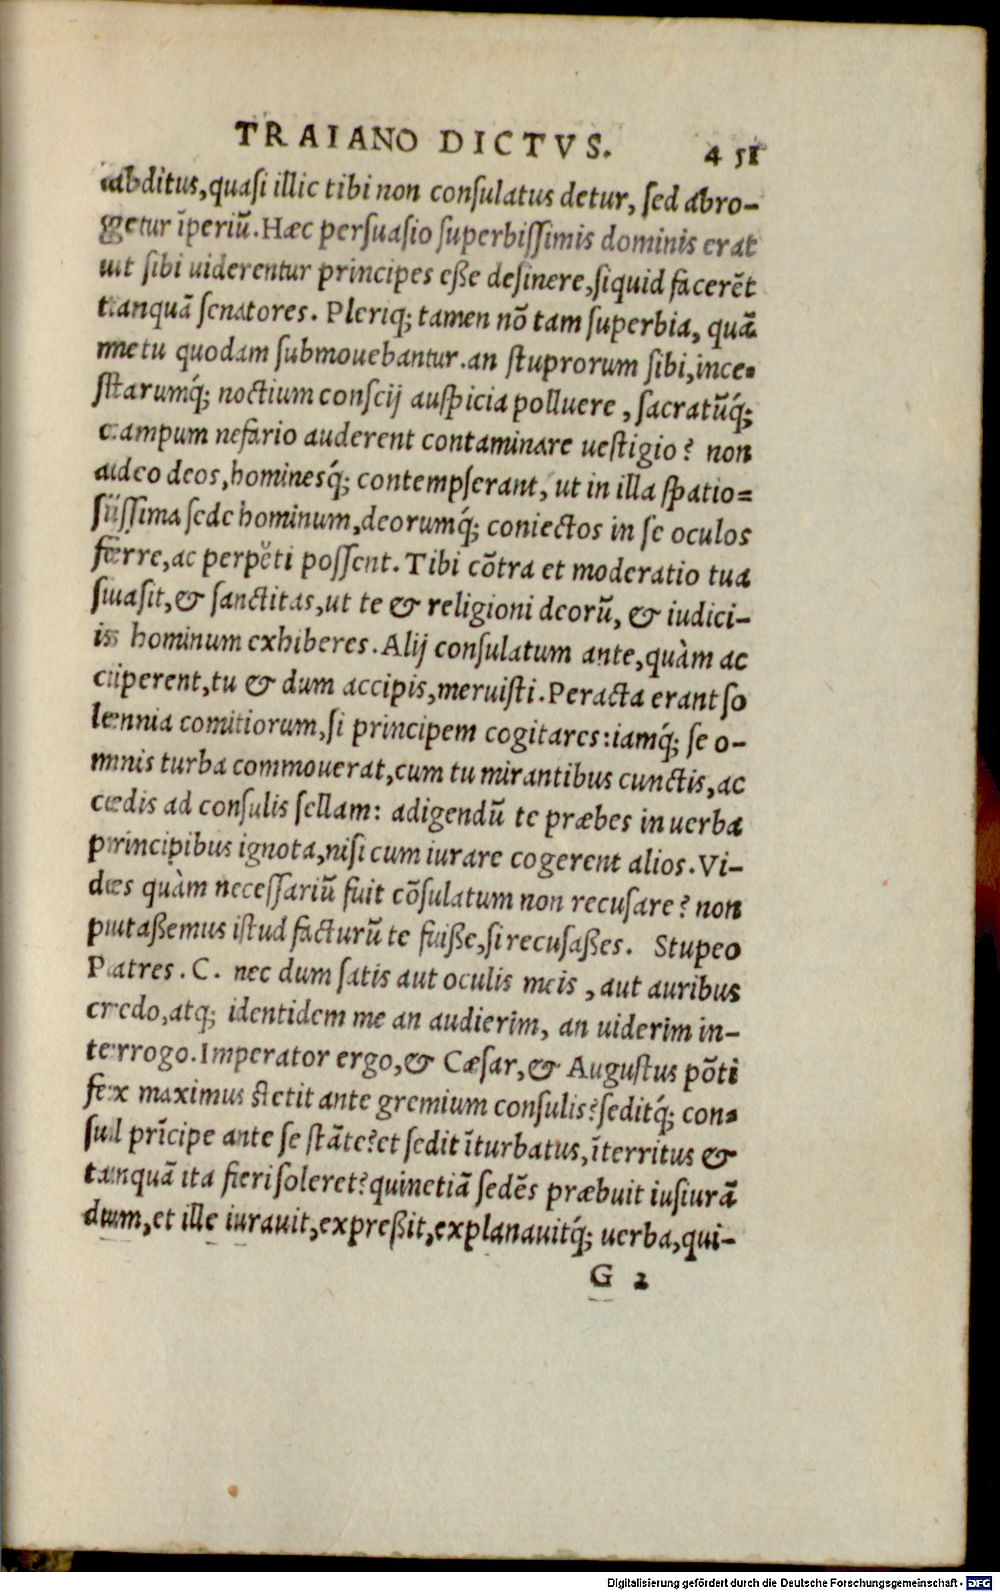 TRAIANO DICTVS. 451
abditus,quaſi illic tibi non conſulatus detur, ſed abro-
getur īperiũ.Hæc perſuaſio ſuperbiſſimis dominis erat
ut ſibi uiderentur principes eße deſinere,ſiquid facerēt
tanquã ſenatores. Pleriq; tamen nõ tam ſuperbia, quã
metu quodam ſubmouebantur.an ſtuprorum ſibi,ince-
ſtarumq́; noctium conſcij auſpicia polluere, ſacratũq́;
campum nefario auderent contaminare ueſtigio? non
adeo deos,hominesq́; contempſerant, ut in illa ſpatio=
ſiſſima ſede hominum,deorumq́; coniectos in ſe oculos
ferre,ac perpĕti poſſent. Tibi cõtra et moderatio tua
ſuaſit,& ſanctitas,ut te & religioni deorũ, & iudici-
is hominum exhiberes. Alij conſulatum ante,quàm ac
ciperent,tu & dum accipis,meruiſti. Peracta erant ſo
lennia comitiorum,ſi principem cogitares:iamq́; ſe o-
mnis turba commouerat,cum tu mirantibus cunctis,ac
cedis ad conſulis ſellam: adigendũ te præbes in uerba
principibus ignota,niſi cum iurare cogerent alios. Vi-
des quàm neceſſariũ fuit cõſulatum non recuſare? non
putaßemus iſtud facturũ te fuiße,ſi recuſaßes. Stupeo
Patres. C. nec dum ſatis aut oculis meis, aut auribus
credo,atq; identidem me an audierim, an uiderim in-
terrogo. Imperator ergo,& Cæſar,& Auguſtus põti
fex maximus ſtetit ante gremium conſulis?ſeditq́; con-
ſul prīcipe ante ſe ſtãte?et ſedit īturbatus,īterritus &
tanquã ita fieri ſoleret?quinetiã ſedẽs præbuit iuſiurã
dum,et ille iurauit,expreßit,explanauitq́; uerba,qui-
G 2
Digitalisierung gefördert durch die Deutsche Forschungsgemeinschaft - DFG